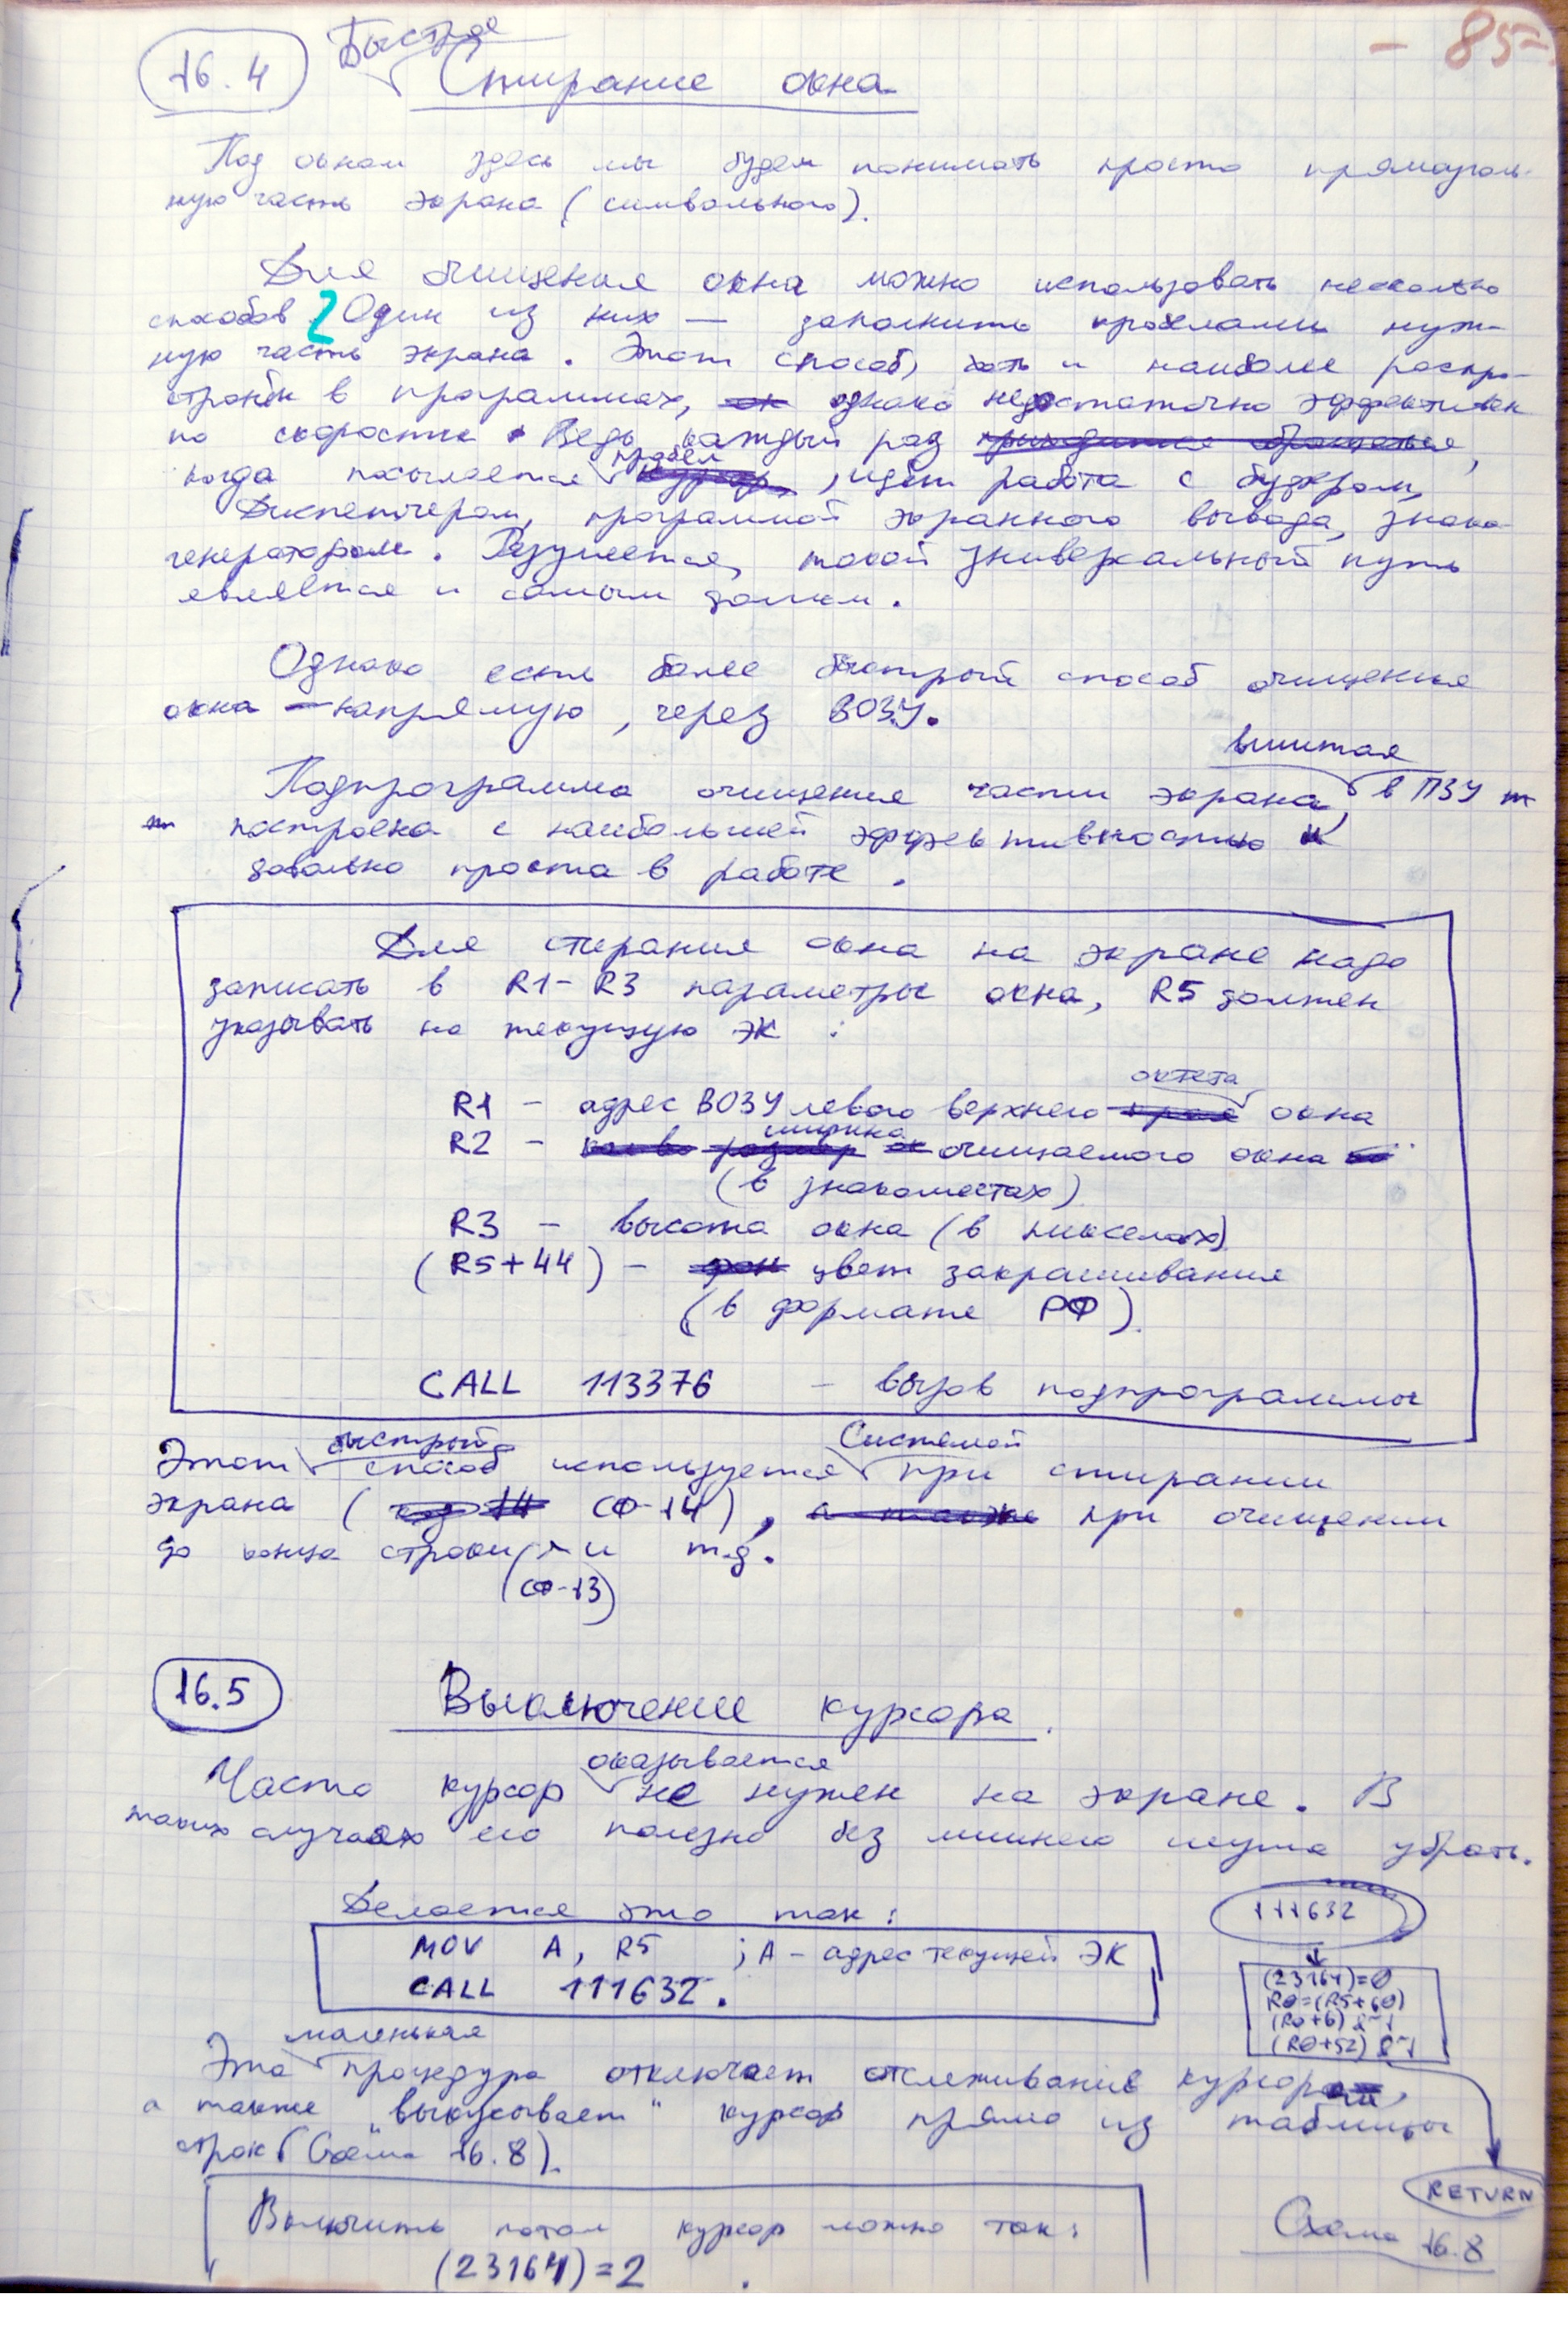 - 85 -
16.4 Быстрое Стирание окна
Под окном здесь мы будем понимать просто прямоуголь-
ную часть экрана (символьного).
Для очищения окна можно использовать несколько
способов. Один из них — заполнить пробелами нуж-
ную часть экрана. Этот способ, хоть и наиболее распро-
странён в программах, однако недостаточно эффективен
по скорости. Ведь каждый раз,
когда посылается пробел, идёт работа с буфером,
диспетчером, программой экранного вывода, знако-
генератором. Разумеется, такой универсальный путь
является и самым долгим.
Однако есть более быстрый способ очищения
окна — напрямую, через ВОЗУ.
Подпрограмма очищения части экрана, вшитая в ПЗУ
построена с наибольшей эффективностью и
довольно проста в работе.
Для стирания окна на экране надо
записать в R1-R3 параметры окна, R5 должен
указывать на текущую ЭК :
R1 - адрес ВОЗУ левого верхнего октета окна
R2 - ширина очищаемого окна
(в знакоместах)
R3 - высота окна (в пикселах)
(R5+44) - цвет закрашивания
(в формате РФ).
CALL 113376 - вызов подпрограммы
Этот быстрый способ используется Системой при стирании
экрана (СФ-14), при очищении
до конца строки и т.д.
(СФ-13)
16.5 Выключение курсора.
Часто курсор оказывается не нужен на экране. В
таких случаях его полезно без лишнего шума убрать.
Делается это так:
MOV A, R5 ; A - адрес текущей ЭК
CALL 111632.
111632
(23164)=0
R0=(R5+60)
(R0+6) &~1
(R0+52) &~1
RETURN
Схема 16.8
Эта маленькая процедура отключает отслеживание курсора,
а также "выкусывает" курсор прямо из таблицы
строк (Схема 16.8).
Включить потом курсор можно так:
(23164)=2